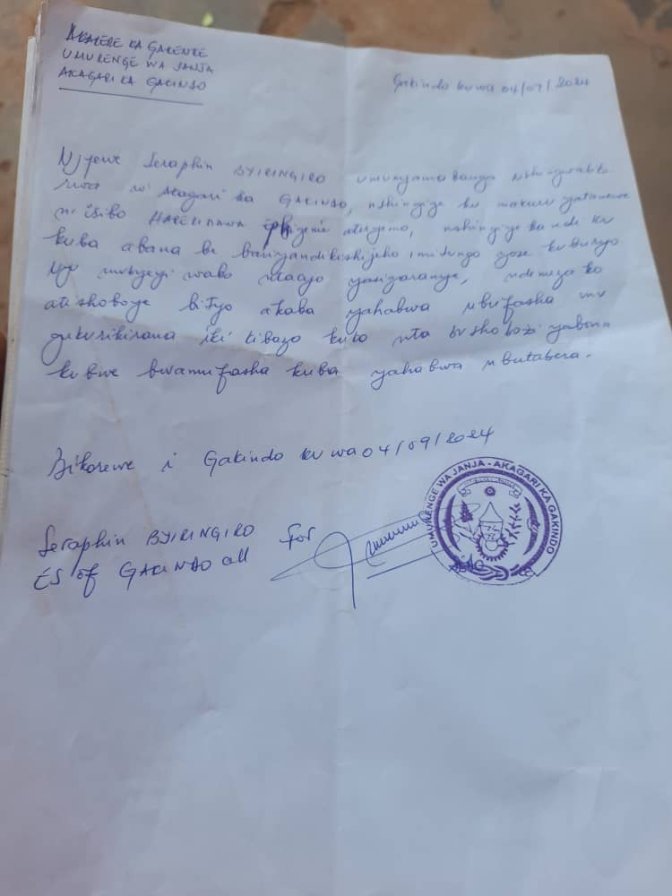 AKARERE KA GAKENKE
UMURENGE WA JANJA
AKAGARI KA GAKINDO
Gakindo kuwa 04/09/2024
Njyewe Seraphin BYIRINGIRO umunyamabanga nshingwabikorwa
w'Akagari ka GAKINDO, nshingiye ku makuru yatanzwe
n'isibo atuyemo, nshingiye kandi ku
kuba abana be barigandikishijeho imitungo yose ku buryo
uyu mubyeyi wabo ntacyo yasigaranye, ndemeza ko
atishoboye bityo akaba yahabwa ubufasha mu
gukurikirana iki kibazo kuko nta bushobozi yabona
ku bwe bwamufasha kuba yahabwa ubutabera.
Bikorewe i Gakindo kuwa 04/09/2024
Seraphin BYIRINGIRO
ES of GAKINDO cell
UMURENGE WA JANJA - AKAGARI KA GAKINDO